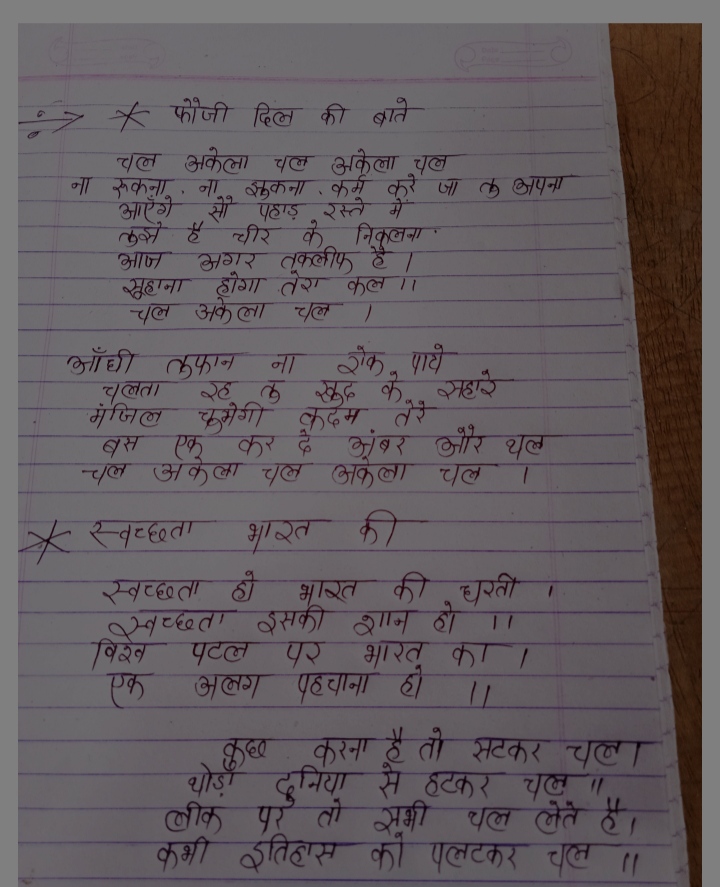 * फौजी दिल की बाते
चल अकेला चल अकेला चल
ना रूकना . ना झुकना . कर्म करे जा तु अपना
आएँगे सौ पहाड़ रस्ते में
तुझे है चीर के निकुलना .
आज अगर तकलीफ है ।
सूहाना होगा तेरा कल ।।
चल अकेला चल ।
आँधी तुफान ना रोक पाये
चलता रह तु खुद के सहारे
मंजिल चुमेगी कदम तेरे
बस एक कर दे अंबर और थल
चल अकेला चल अकेला चल ।
* स्वच्छता भारत की
स्वच्छता हो भारत की धरती ।
स्वच्छता इसकी शान हो ।।
विश्व पटल पर भारत का ।
एक अलग पहचाना हो ।।
कुछ करना है तो सटकर चल ।
थोड़ा दुनिया से हटकर चल ।।
लीक पर तो सभी चल लेते है ।
कभी इतिहास को पलटकर चल ।।